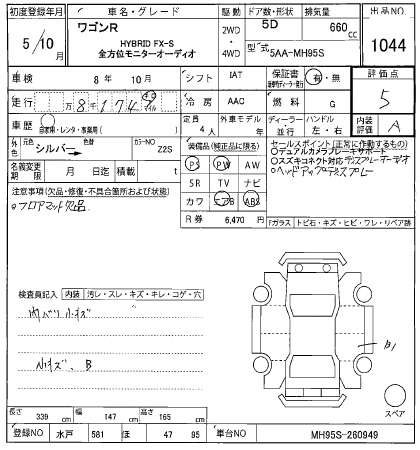 初度登録年月
車名・グレード
駆動
ドア数・形状
排気量
出品NO
5/10月
ワゴンR
HYBRID FX-S
全方位モニターオーディオ
2WD
・
4WD
5D
660cc
型式
5AA-MH95S
1044
車検
8年 10月
シフト
IAT
保証書
有・無
評価点
5
走行
万8千174
冷房
AAC
燃料
G
車歴
自家用・レンタ・事業用( )
定員
4人
外車モデル
年
ディーラー
・
並行
ハンドル
左・右
内装
評価
A
外色
元色
シルバー
色替
カラーNO
Z2S
装備品(純正品に限る)
セールスポイント(正常に作動するもの)
名義変更
期限
月 日迄
積載
t
PS PW AW
SR TV ナビ
カワ エアB ABS
○デュアルカメラブレーキサポート
○スズキコネクト対応ディスプレーオーディオ
○ヘッドアップディスプレー
注意事項(欠品・修復・不具合箇所および状態)
○フロアマット欠品
R券
6,470円
Fガラス
トビ石・キズ・ヒビ・ワレ・リペア跡
検査員記入
内装
汚レ・スレ・キズ・キレ・コゲ・穴
内バリ小キズ
小キズ、B
B1
スペア
長さ 339cm
幅 147cm
高さ 165cm
登録NO
水戸 581 ほ 47 95
車台NO
MH95S-260949